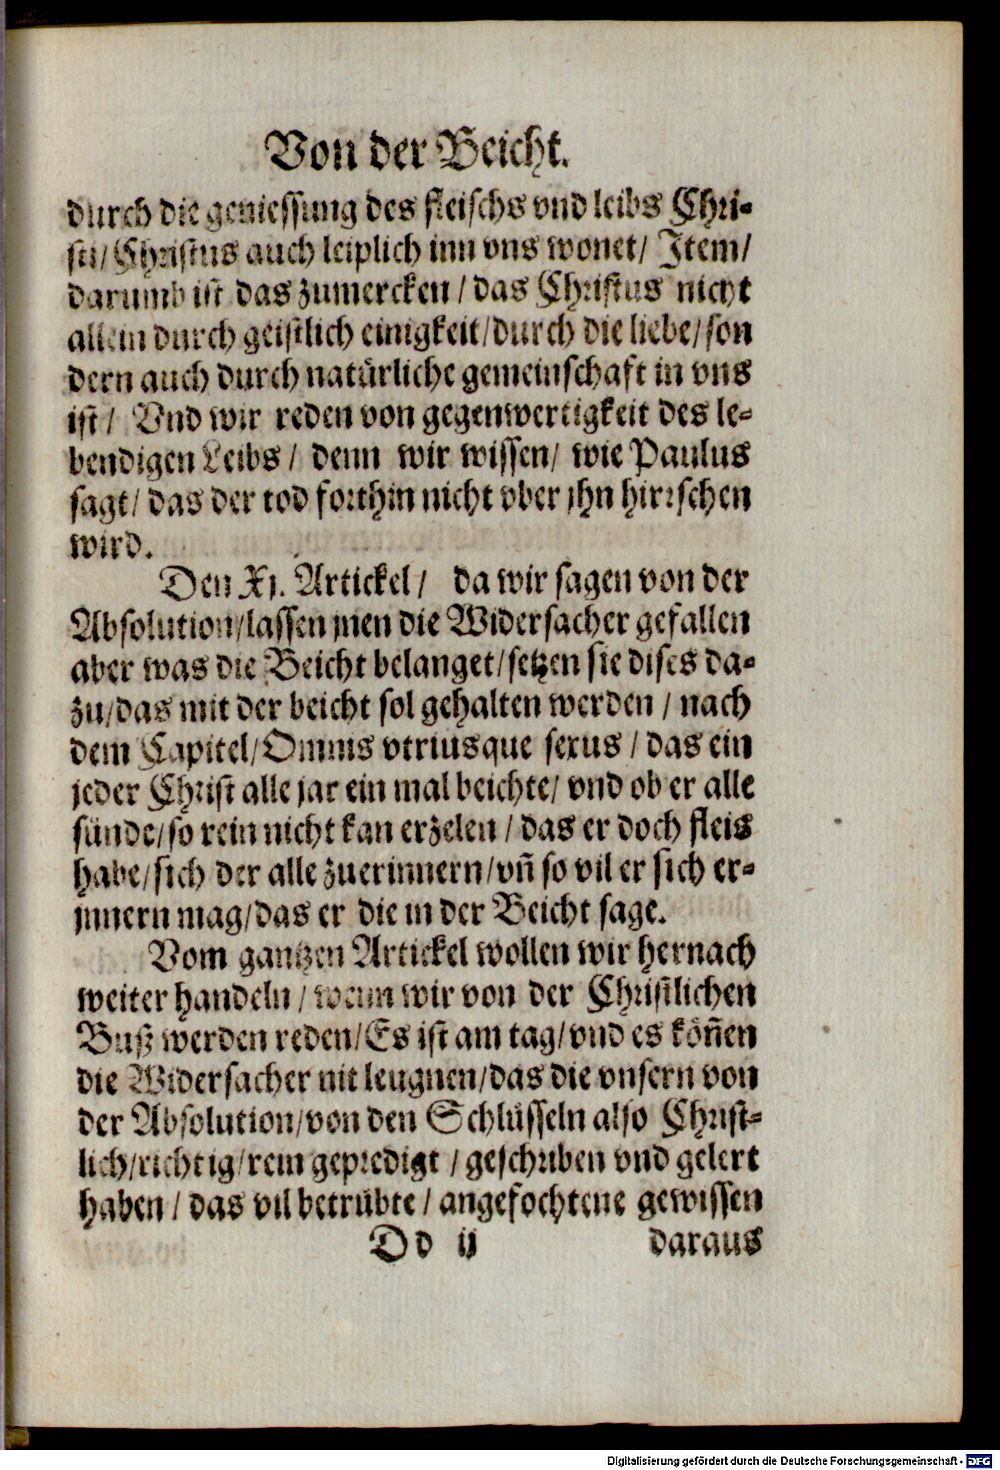 Von der Beicht.
durch die geniessung des fleischs vnd leibs Chri-
sti/Christus auch leiplich inn vns wonet/ Item/
darumb ist das zumercken/das Christus nicht
allein durch geistlich einigkeit/durch die liebe/son
dern auch durch natürliche gemeinschaft in vns
ist/ Vnd wir reden von gegenwertigkeit des le-
bendigen Leibs/ denn wir wissen/ wie Paulus
sagt/das der tod forthin nicht vber jhn hirrschen
wird.
Den Xj. Artickel/ da wir sagen von der
Absolution/lassen jnen die Widersacher gefallen
aber was die Beicht belanget/setzen sie dises da-
zu/das mit der beicht sol gehalten werden/nach
dem Capitel/Omnis vtriusque sexus/das ein
jeder Christ alle jar ein mal beichte/vnd ob er alle
sünde/so rein nicht kan erzelen/das er doch fleis
habe/sich der alle zuerinnern/vñ so vil er sich er-
jnnern mag/das er die in der Beicht sage.
Vom gantzen Artickel wollen wir hernach
weiter handeln/wenn wir von der Christlichen
Buß werden reden/Es ist am tag/vnd es köñen
die Widersacher nit leugnen/das die vnsern von
der Absolution/von den Schlüsseln also Christ-
lich/richtig/rein gepredigt/geschriben vnd gelert
haben/das vil betrübte/angefochtene gewissen
Dd ij daraus
Digitalisierung gefördert durch die Deutsche Forschungsgemeinschaft - DFG